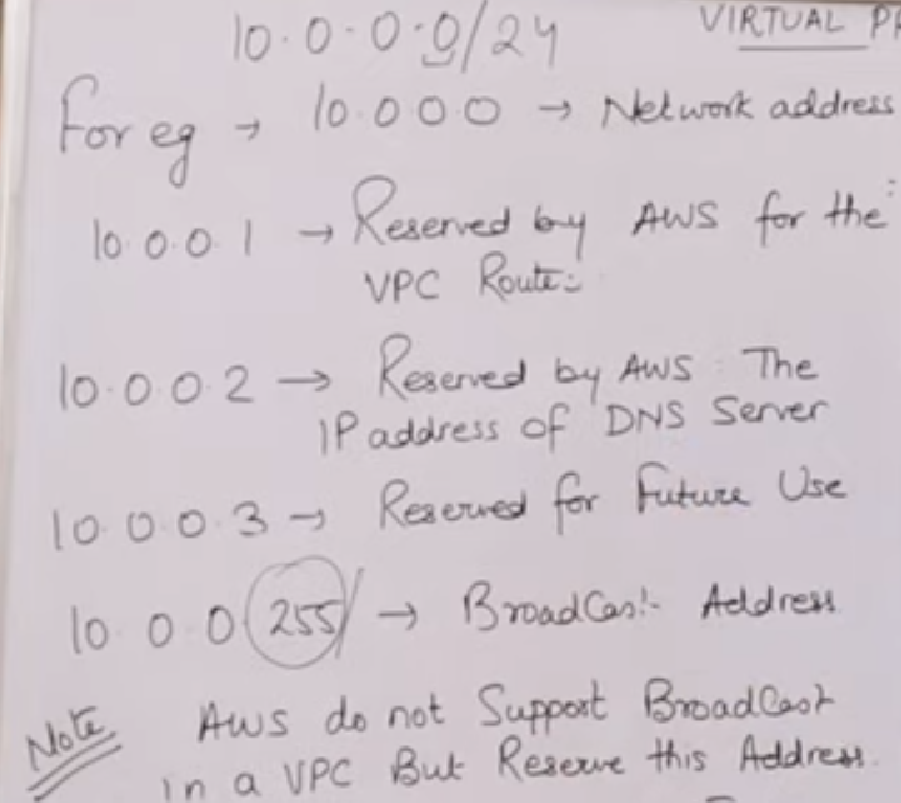 10.0.0.0/24
VIRTUAL
For eg → 10.0.0.0 → Network address
10.0.0.1 → Reserved by AWS for the
VPC Route
10.0.0.2 → Reserved by AWS The
IP address of DNS Server
10.0.0.3 → Reserved for Future Use
10.0.0.255 → BroadCast Address
Note AWS do not Support BroadCast
in a VPC But Reserve this Address.